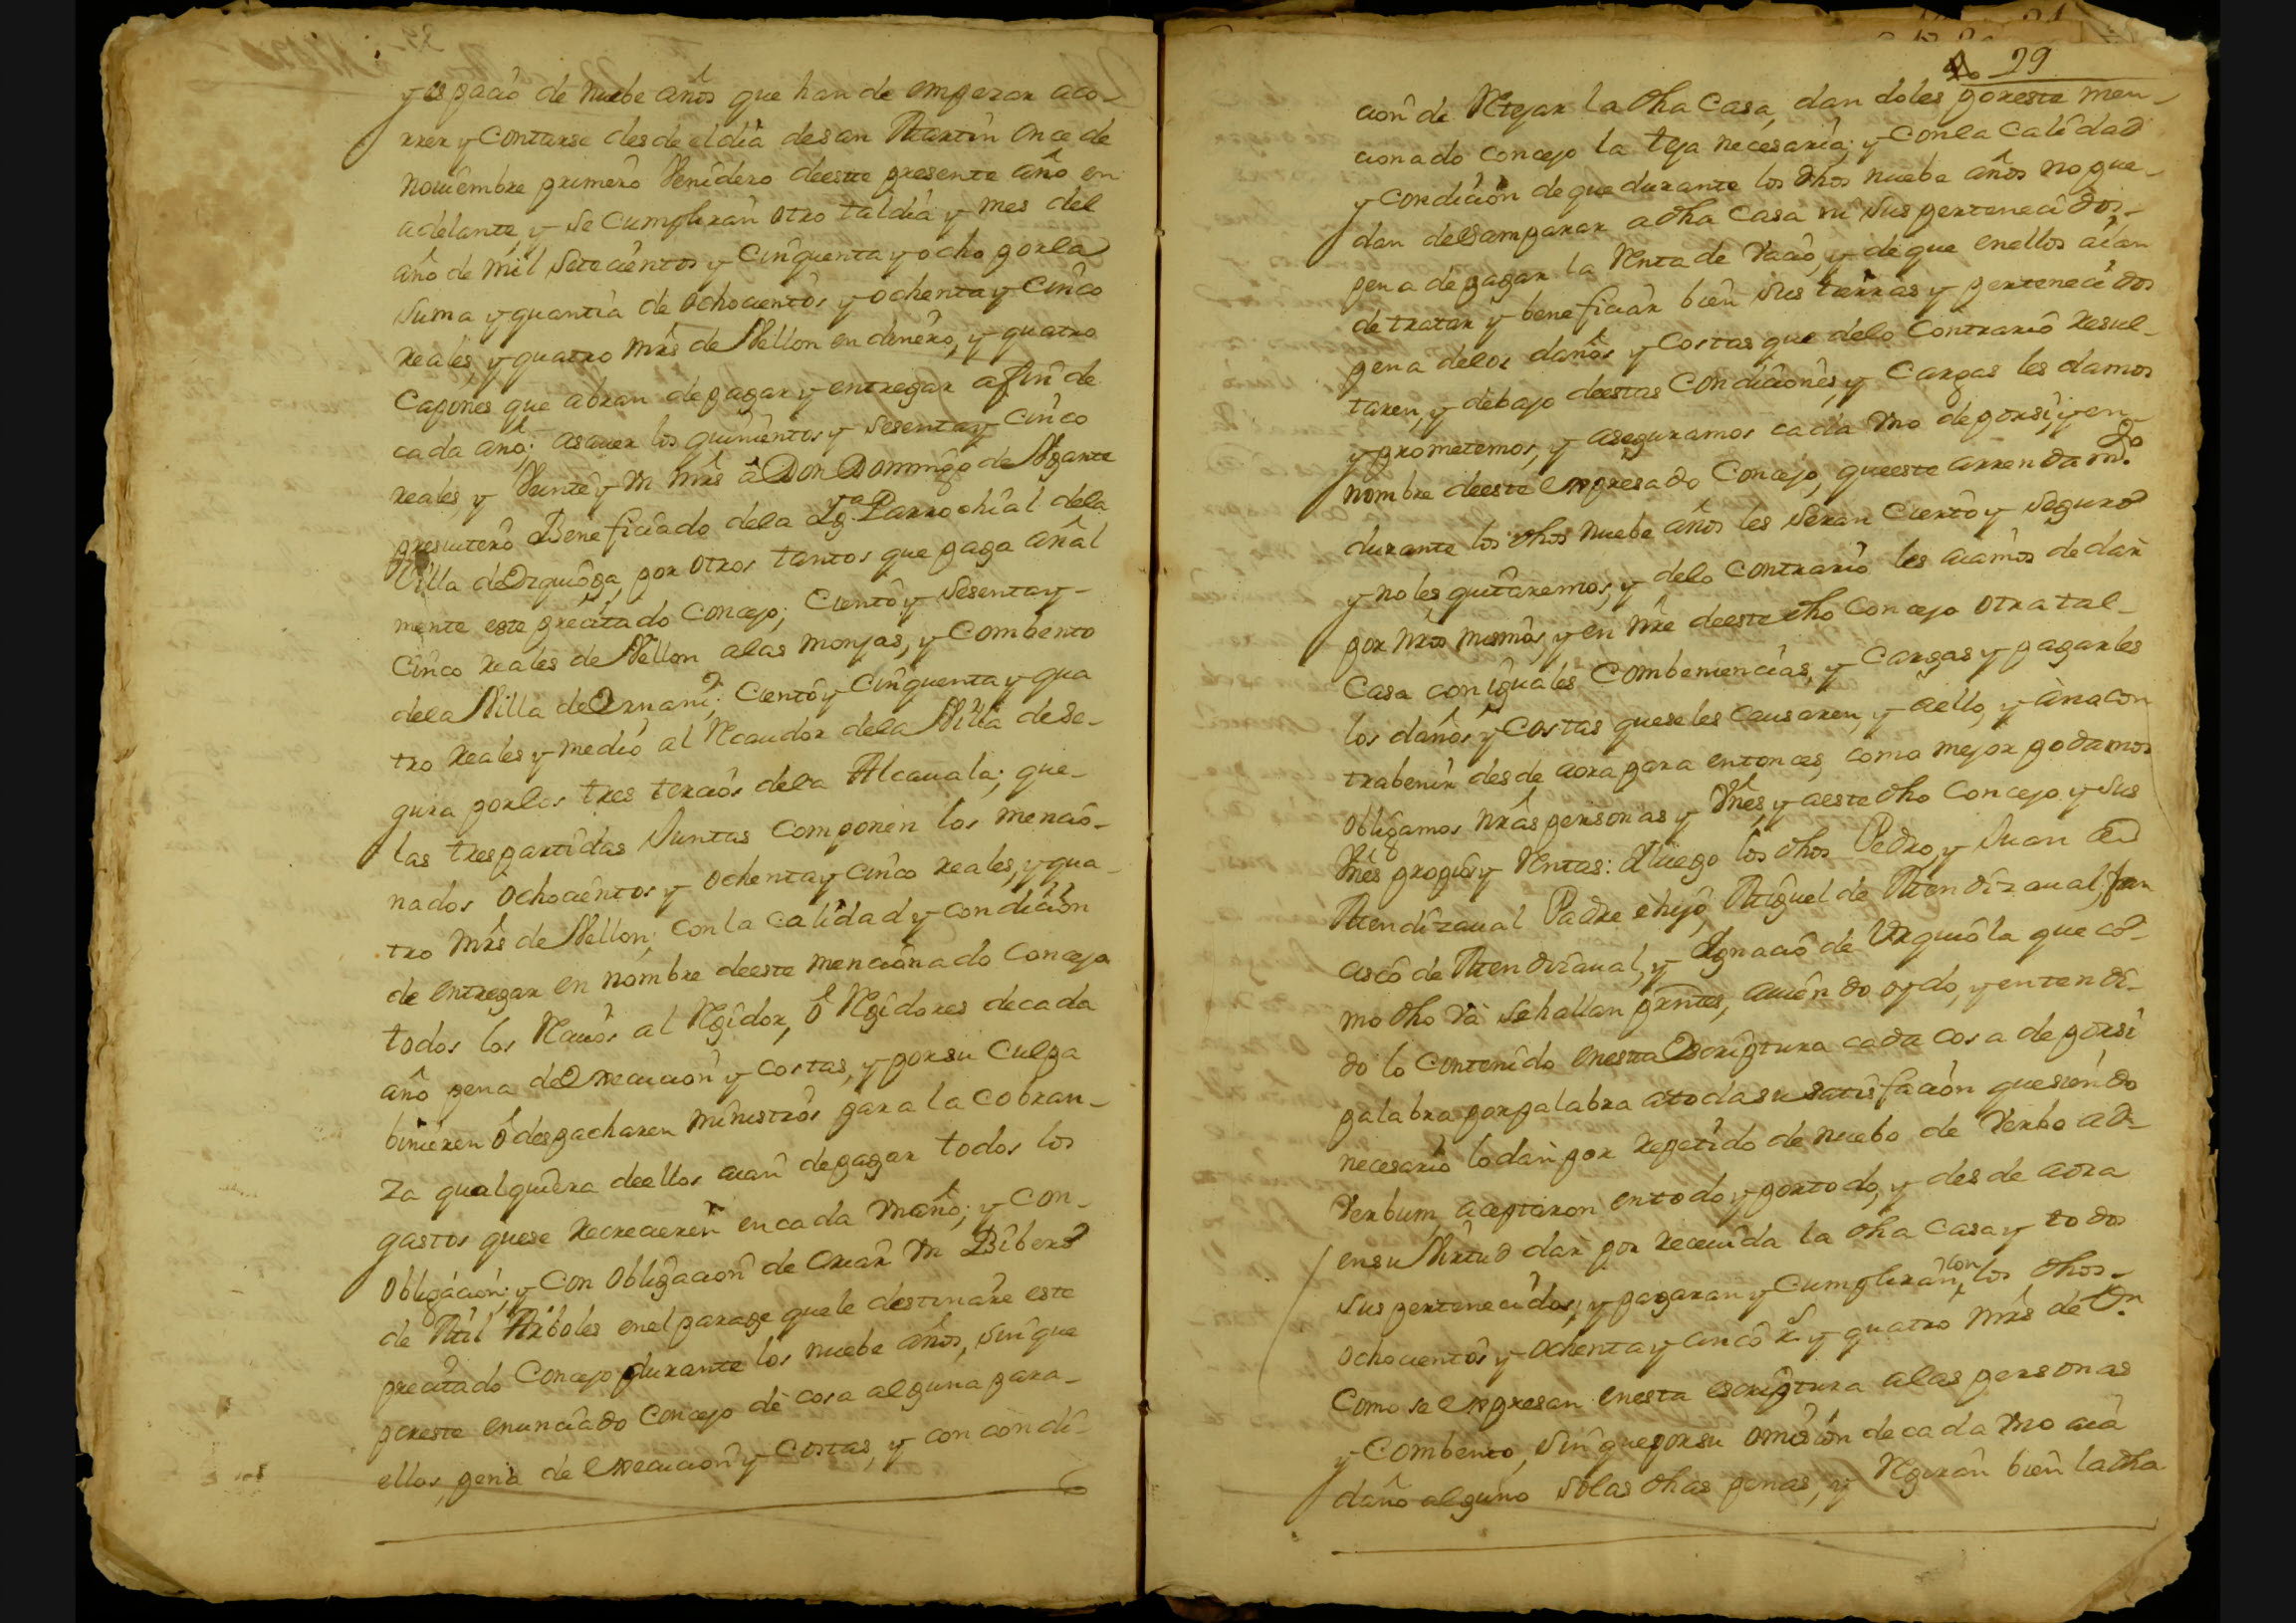 y espacio de nuebe años que han de empezar aco-
rrer y Contarse desde el dia desan Martin once de
noviembre primero Venidero deeste presente año en
adelante, y se Cumpliran otro taldia y mes del
año de mil setecientos y Cinquenta y ocho por la
suma y quantia de ochocientos y ochenta y Cinco
reales, y quatro mrs de Vellon en dinero, y quatro
Capones que abran de pagar y entregar afin de
cada año; asauer los quinientos y sesenta y Cinco
reales y Veinte y Un mrs à Don Domingo de Ugarte
presuitero Beneficiado dela Yg.ª Parrochial dela
Villa de Vrquiôga, por otros tantos que paga añal
mente este precitado Concejo; Ciento y sesenta y
Cinco reales de Vellon alas monjas, y Combento
dela Villa de Ernani; Ciento y Cinquenta y qua
tro reales y medio al Recaudor dela Villa de Se-
gura por los tres tercios dela Alcauala; que-
las tres partidas Juntas componen los mencio-
nados ochocientos y ochenta y Cinco reales, y qua-
tro mrs de Vellon; con la calidad y condicion
de entregar en nombre deeste mencionado Concejo
todos los Reciuos al Regidor, ô Regidores decada
año pena de Execucion y costas, y por su culpa
binieren ô despacharen ministros para la cobran-
za qualquiera deellos aian depagar todos los
gastos quese recrecieren en cada Un año; y con-
obligacion; y Con obligacion de criar Un Bibero
de Mil Arboles enel parage quele destinare este
precitado Concejo durante los nuebe años, sin que
poreste enunciado Concejo dè cosa alguna para-
ellos, pena de Execucion y Costas, y con condi-
29
cion de Retejar la dha Casa, dan doles poreste men-
cionado concejo la teja necesaria; y Con la Calidad
y condicion de que durante los dhos nuebe años no pue-
dan desamparar adha Casa ni sus pertenecidos,
pena depagar la Renta de Vacio, y de que enellos aian
de tratar y beneficiar bien sus tierras y pertenecidos
pena delos daños y Costas que delo Contrario resul-
taren, y debajo deestas Condiciones, y Cargas les damos
y prometemos, y aseguramos cada Uno deporsi, y en
nombre deeste Expresado Concejo, queeste arrendam.to
durante los dhos nuebe años les seran Cierto y seguro
y no les quitaremos, y delo Contrario les aiamos de dar
por nros mismos, y en nre deeste dho Concejo otra tal
Casa con iguales Combeniencias, y Cargas y pagarles
los daños y Costas queseles Causaren, y aello, y ànacon
trabenir desde aora para entonces, como mejor podamos
obligamos nrâs personas y Vnês, y aeste dho Concejo y sus
Vnês propios y Rentas: E luego los dhos Pedro, y Juan de
Mendizaual Padre è hijo, Miguel de Mendizaual, Fran
cisco de Mendizaual, y Ignacio de Vrquiola que co-
mo dho và se hallan presntes, auiendo oydo, y entendi-
do lo Contenido enesta Escriptura cada cosa de porsi
palabra por palabra atoda su satisfacion quesiendo
necesario lo dan por repetido de nuebo de Verbo ad
Verbum, aceptaron entodo y portodo, y desde aora
ensu Virtud dan por receuida la dha Casa y todos
sus pertenecidos; y pagaran y Cumpliran con los dhos
ochocientos y ochenta y cinco r.s y quatro mrs de Vn.
Como se Expresan enesta escriptura alas personas
y Combento, sin que por su omision decada Uno aia
daño alguno solas dhas penas, y Regiran bien la dha